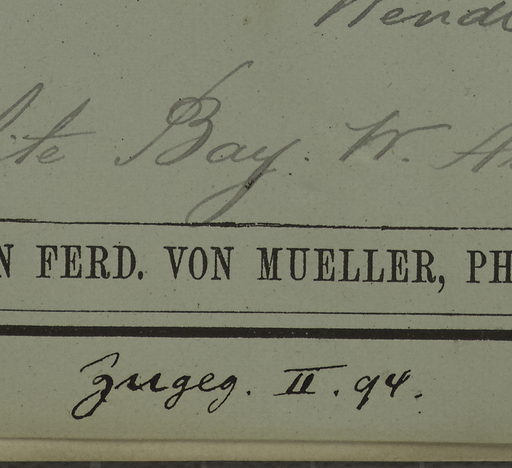 Wend
ite Bay. W. A
N FERD. VON MUELLER, PH
Zugeg. II. 94.